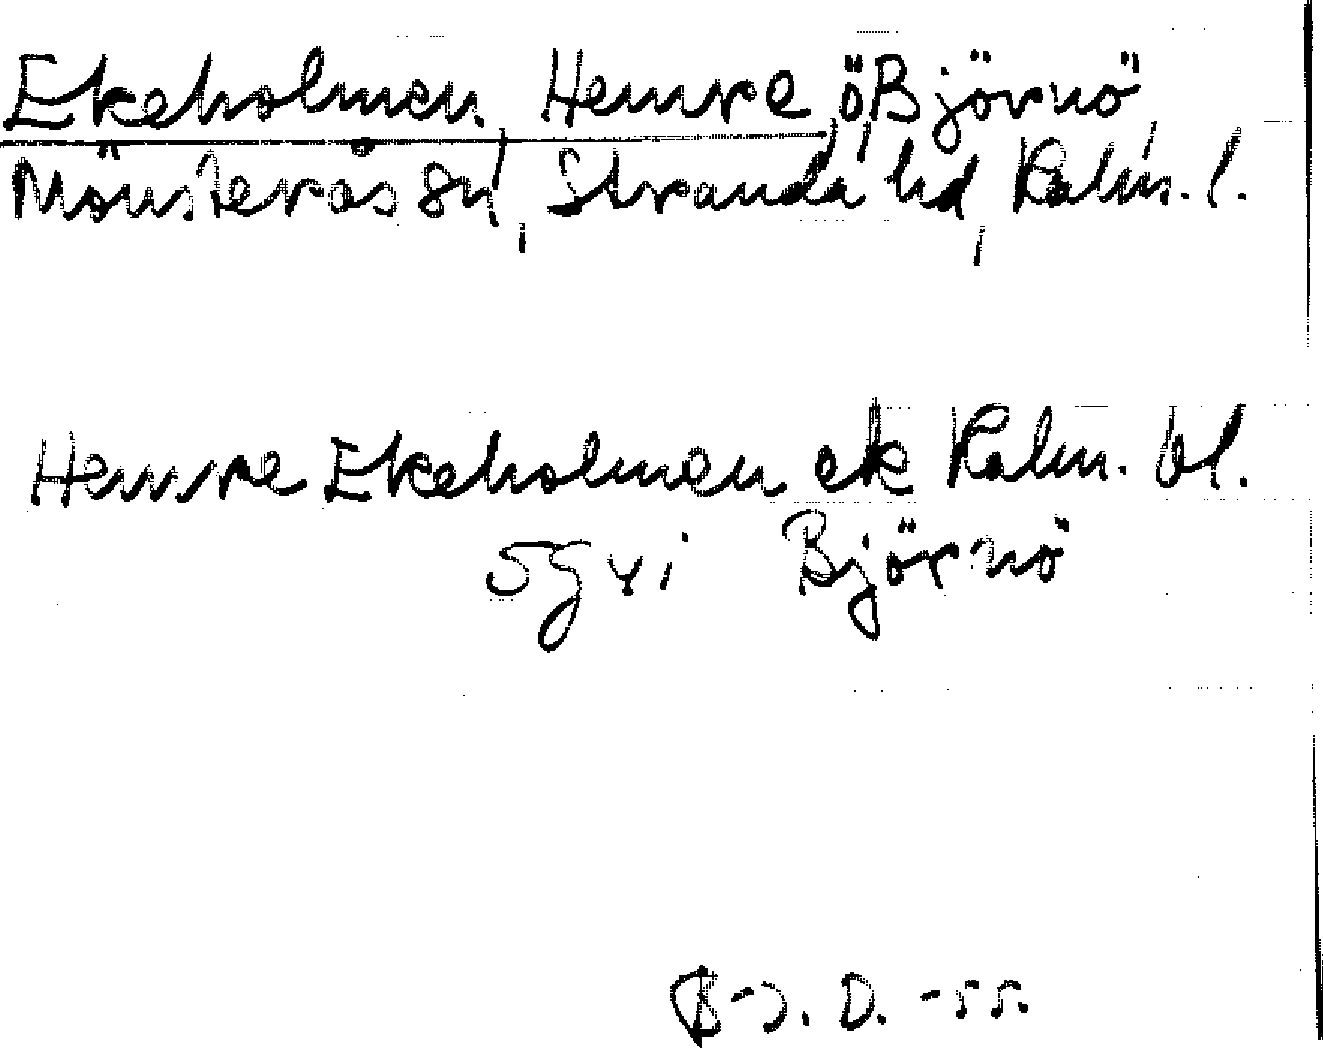 Ekeholmen, Hemre, ö, Björnö,
Mönsterås sn, Stranda hd, Kalm. l.
Hemre Ekeholmen ek Kalm. bl.
5g vi Björnö
B-J. D. -55.